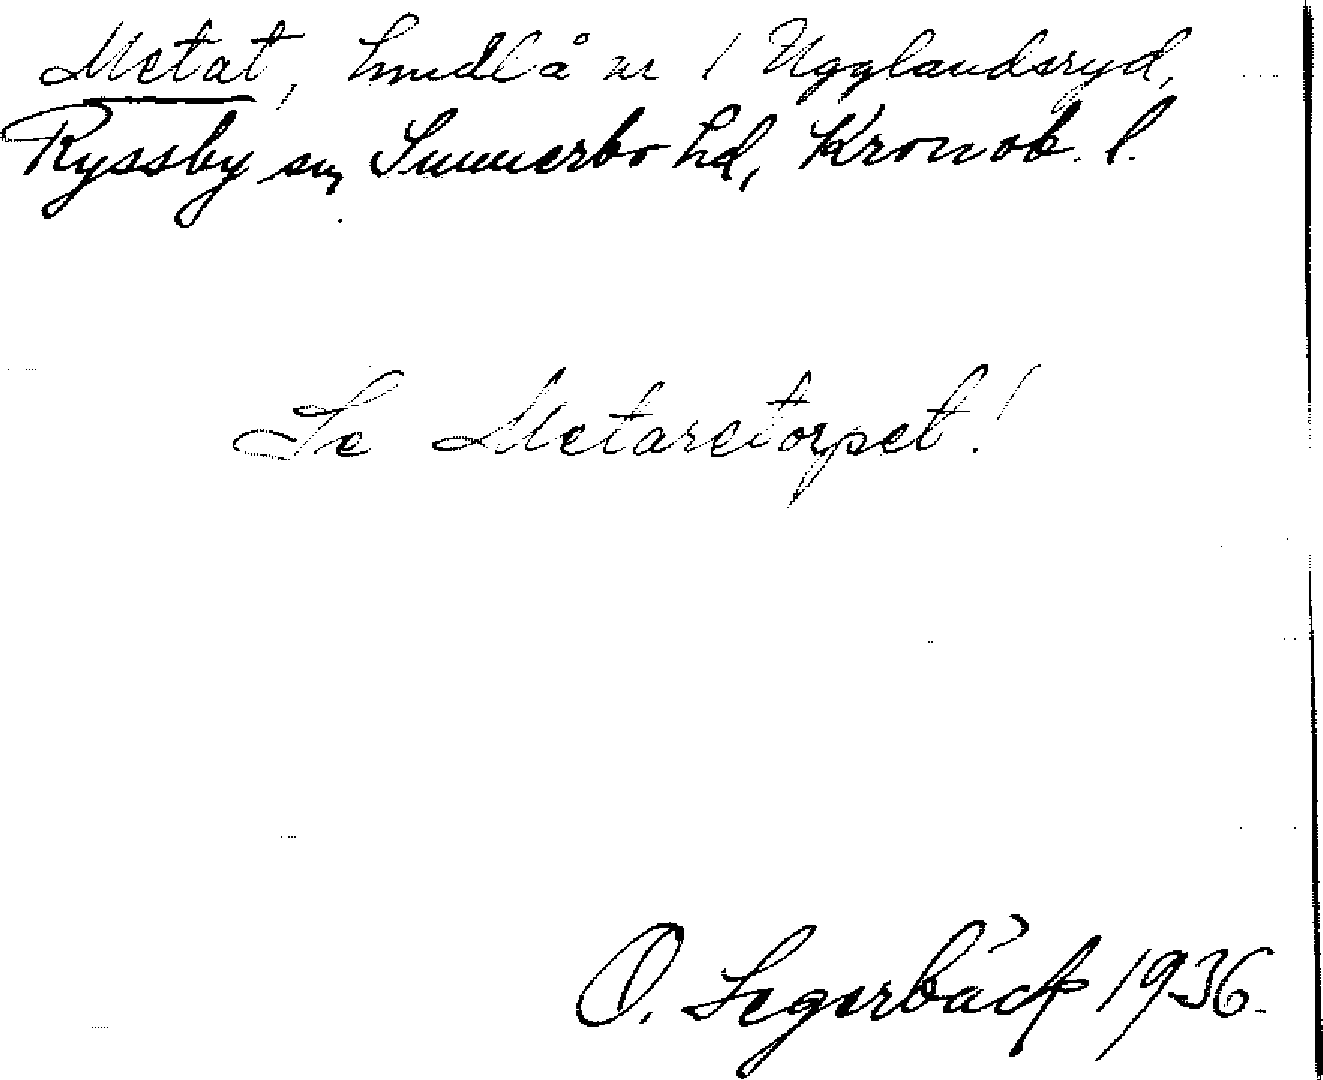 Metat, hmdl å nr 1 Ugglandsryd,
Ryssby sn, Sunnerbo hd, Kronob. l.
Se Metaretorpet!
O. Segerbäck 1936.